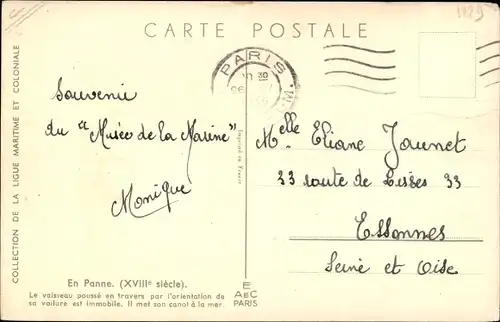 CARTE POSTALE
1129
PARIS
COLLECTION DE LA LIGUE MARITIME ET COLONIALE
Souvenir
du "Musée de la Marine"
Monique
Imprimé en France
Melle Eliane Jaunet
33 route de Lisses 33
Essonnes
Seine et Oise
En Panne. (XVIIIe siècle).
Le vaisseau poussé en travers par l'orientation de
sa voilure est immobile. Il met son canot à la mer.
E
A E C
PARIS